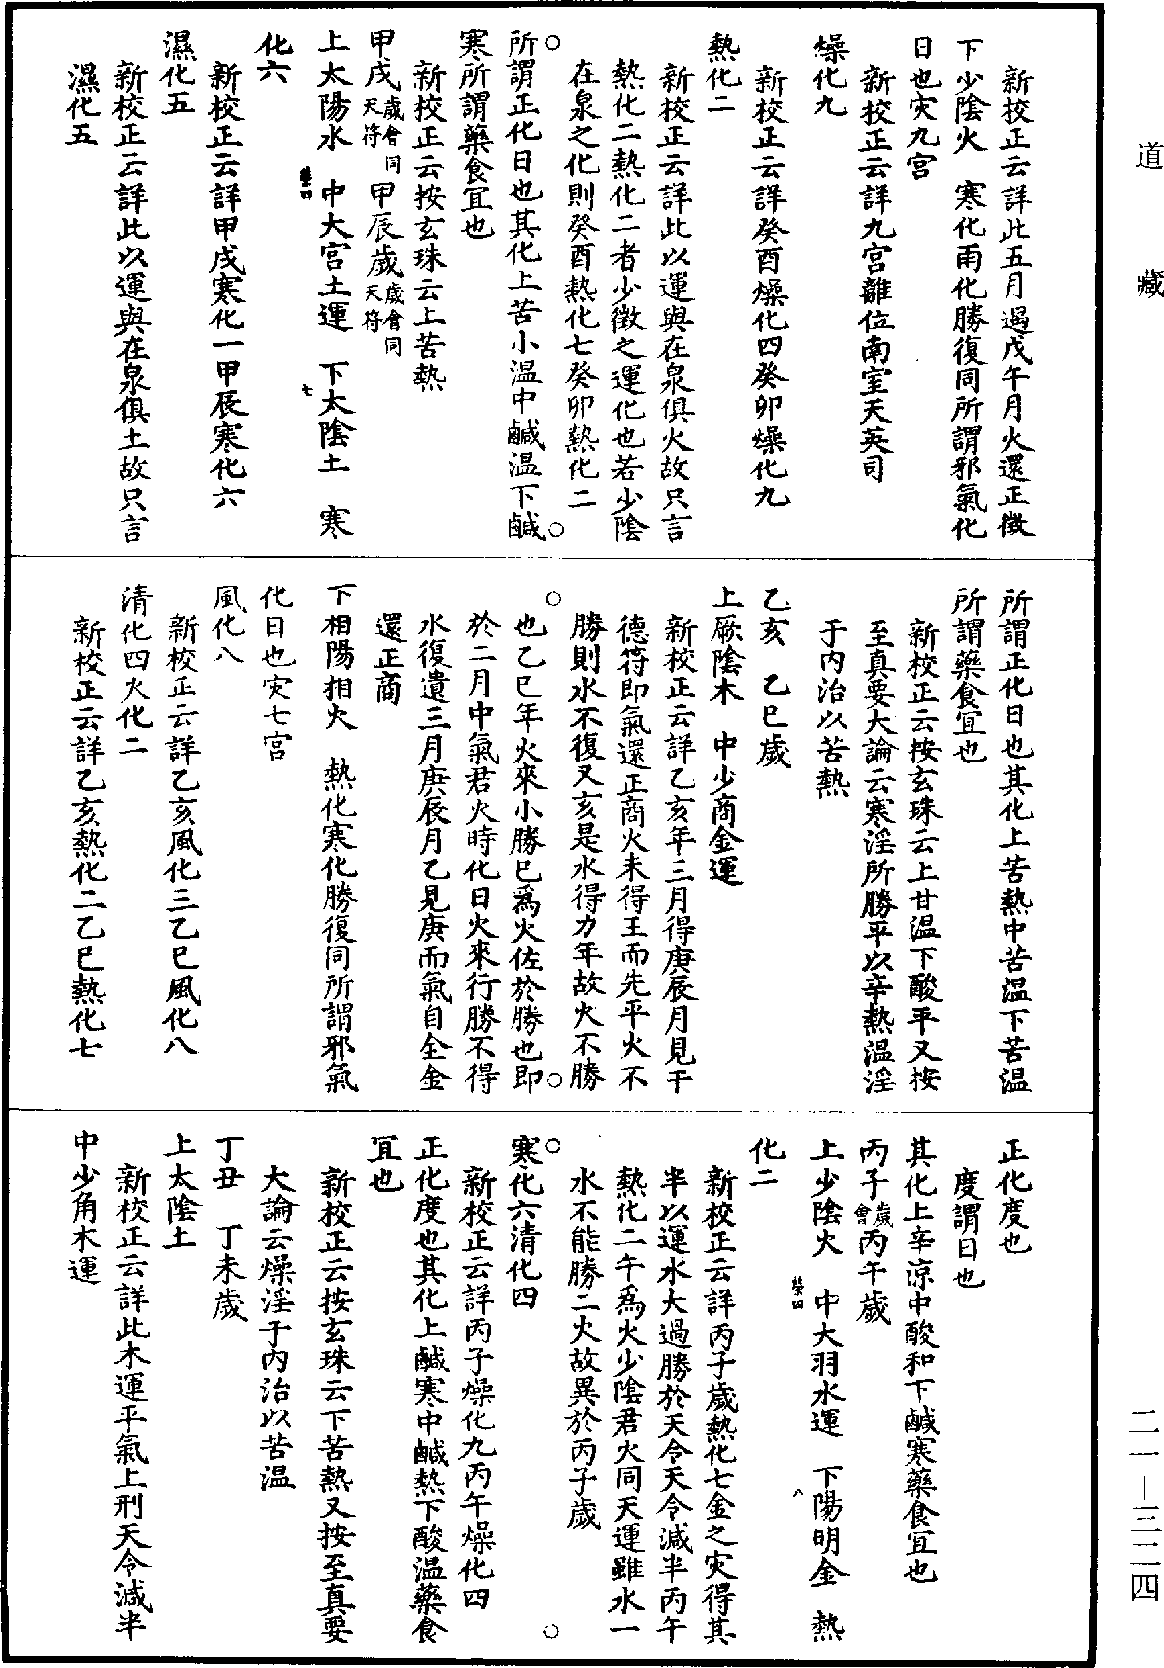 道藏
新校正云詳此五月過戊午月火還正徵
下少陰火　寒化雨化勝復同所謂邪氣化
日也灾九宮
新校正云詳九宮離位南室天英司
燥化九
新校正云詳癸酉燥化四癸卯燥化九
熱化二
新校正云詳此以運與在泉俱火故只言
熱化二熱化二者少徵之運化也若少陰
在泉之化則癸酉熱化七癸卯熱化二
所謂正化日也其化上苦小溫中鹹溫下鹹
寒所謂藥食宜也
新校正云按玄珠云上苦熱
甲戌歲會同天符甲辰歲歲會同天符
上太陽水　中大宮土運　下太陰土　寒
化六
新校正云詳甲戌寒化一甲辰寒化六
濕化五
新校正云詳此以運與在泉俱土故只言
濕化五
所謂正化日也其化上苦熱中苦溫下苦溫
所謂藥食宜也
新校正云按玄珠云上甘溫下酸平又按
至真要大論云寒淫所勝平以辛熱溫淫
于內治以苦熱
乙亥　乙巳歲
上厥陰木　中少商金運
新校正云詳乙亥年三月得庚辰月見干
德符即氣還正商火未得王而先平火不
勝則水不復又亥是水得力年故火不勝
也乙巳年火來小勝巳爲火佐於勝也即
於二月中氣君火時化日火來行勝不得
水復遺三月庚辰月乙見庚而氣自全金
還正商
下相陽相火　熱化寒化勝復同所謂邪氣
化日也灾七宮
風化八
新校正云詳乙亥風化三乙巳風化八
清化四火化二
新校正云詳乙亥熱化二乙巳熱化七
正化度也
度謂日也
其化上辛涼中酸和下鹹寒藥食宜也
丙子歲會丙午歲
上少陰火　中大羽水運　下陽明金　熱
化二
新校正云詳丙子歲熱化七金之灾得其
半以運水大過勝於天令天令減半丙午
熱化二午爲火少陰君火同天運雖水一
水不能勝二火故異於丙子歲
寒化六清化四
新校正云詳丙子燥化九丙午燥化四
正化度也其化上鹹寒中鹹熱下酸溫藥食
宜也
新校正云按玄珠云下苦熱又按至真要
大論云燥淫于內治以苦溫
丁丑　丁未歲
上太陰土
新校正云詳此木運平氣上刑天令減半
中少角木運
二一—三二四